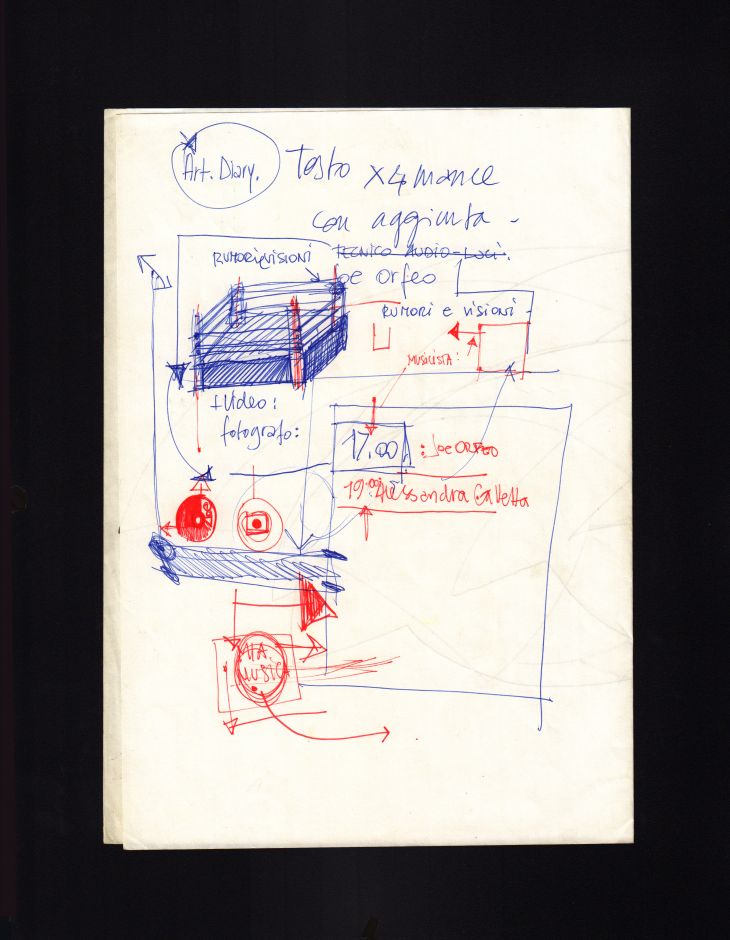 Art. Diary.
Testo x 4 mance
con aggiunta -
TECNICO AUDIO-LUCI.
RUMORI VISIONI
Joe Orfeo
RUMORI e VISIONI -
MUSICISTA:
+ Video:
fotografo:
17.00 : Joe ORFEO
19.00 Alessandra Galletta
MUSICA